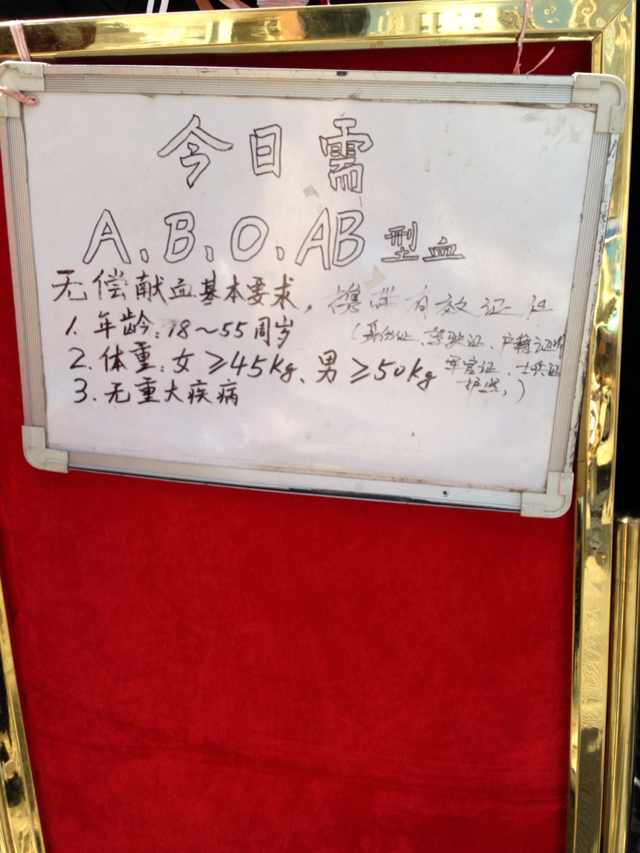 今日需
A、B、O、AB型血
无偿献血基本要求，携带有效证件
1. 年龄：18～55周岁
（身份证、驾驶证、户籍证明
2. 体重：女≥45kg、男≥50kg
军官证、士兵证
护照，）
3. 无重大疾病